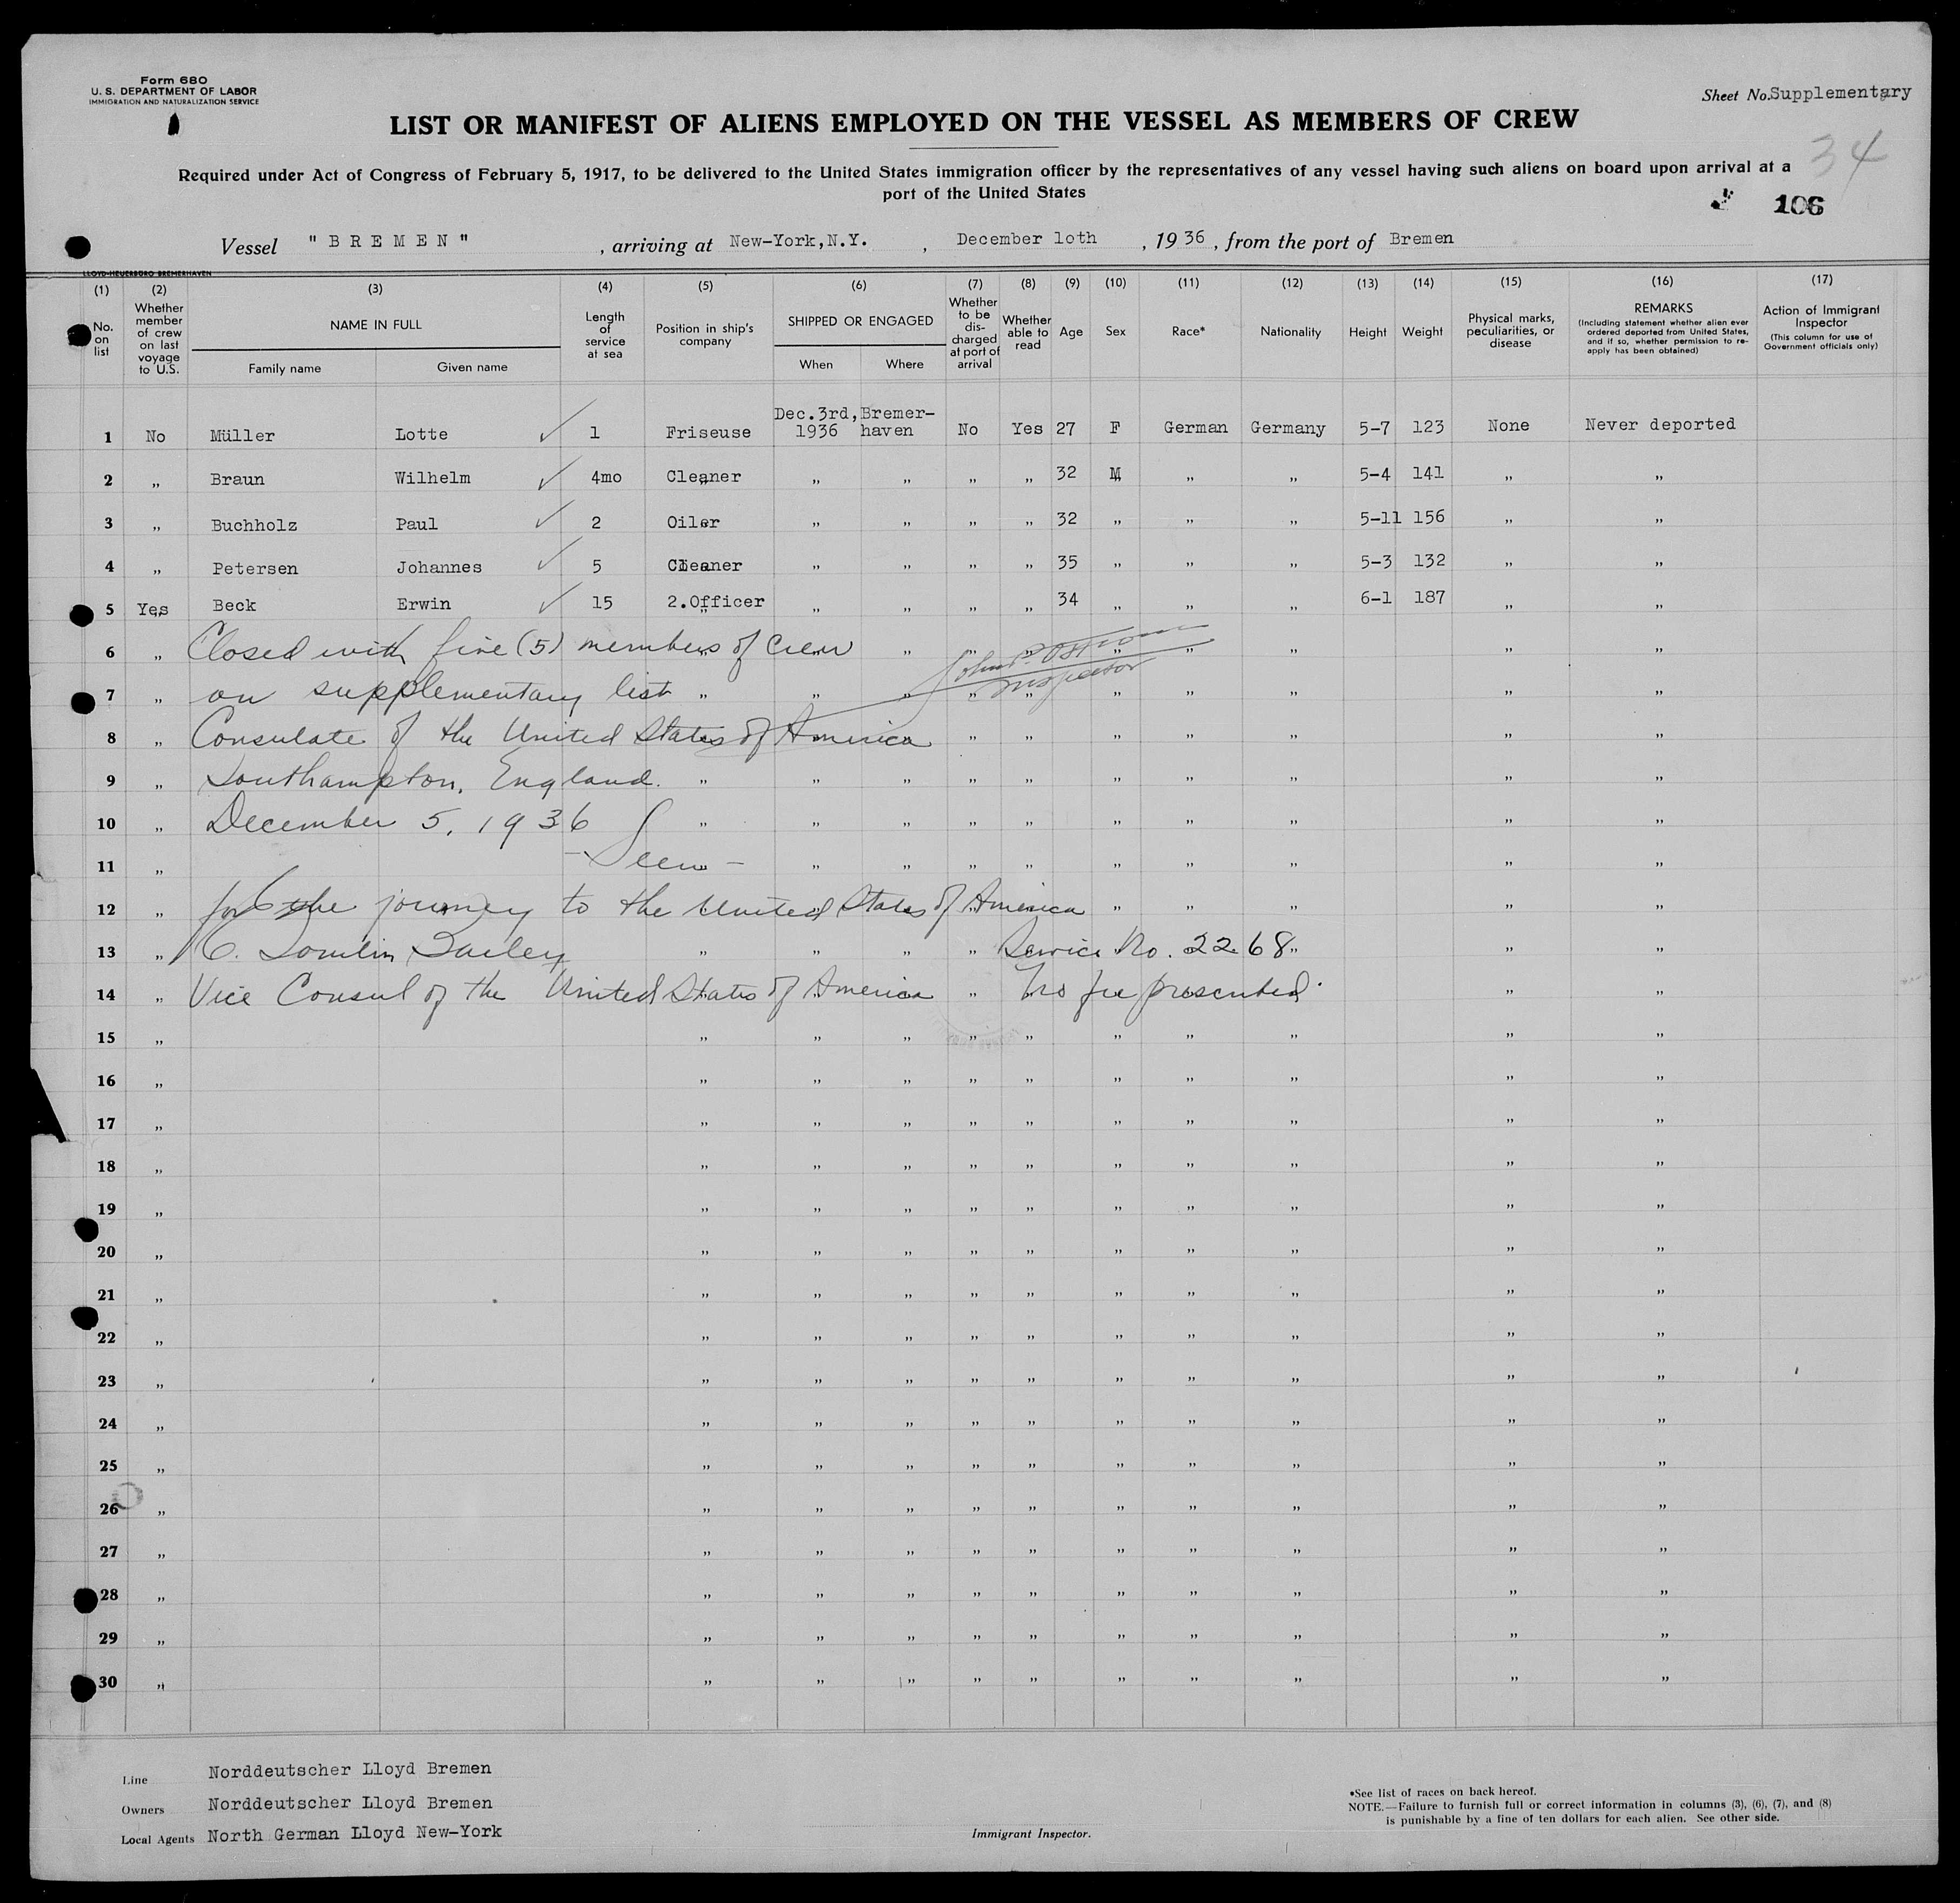 Form 680
U. S. DEPARTMENT OF LABOR
IMMIGRATION AND NATURALIZATION SERVICE
Sheet No. Supplementary
LIST OR MANIFEST OF ALIENS EMPLOYED ON THE VESSEL AS MEMBERS OF CREW
34
Required under Act of Congress of February 5, 1917, to be delivered to the United States immigration officer by the representatives of any vessel having such aliens on board upon arrival at a
port of the United States
106
Vessel "BREMEN", arriving at New-York, N.Y., December 10th, 1936, from the port of Bremen
LLOYD-HEUERBÜRO BREMERHAVEN
(1) No. on list
(2) Whether member of crew on last voyage to U.S.
(3) NAME IN FULL Family name Given name
(4) Length of service at sea
(5) Position in ship's company
(6) SHIPPED OR ENGAGED When Where
(7) Whether to be discharged at port of arrival
(8) Whether able to read
(9) Age
(10) Sex
(11) Race*
(12) Nationality
(13) Height
(14) Weight
(15) Physical marks, peculiarities, or disease
(16) REMARKS (Including statement whether alien ever ordered deported from United States, and if so, whether permission to re-apply has been obtained)
(17) Action of Immigrant Inspector (This column for use of Government officials only)
1 No Müller Lotte ✓ 1 Friseuse Dec.3rd, 1936 Bremer-haven No Yes 27 F German Germany 5-7 123 None Never deported
2 „ Braun Wilhelm ✓ 4mo Cleaner „ „ „ „ 32 M „ „ 5-4 141 „ „
3 „ Buchholz Paul ✓ 2 Oiler „ „ „ „ 32 „ „ „ 5-11 156 „ „
4 „ Petersen Johannes ✓ 5 Cleaner „ „ „ „ 35 „ „ „ 5-3 132 „ „
5 Yes Beck Erwin ✓ 15 2.Officer „ „ „ „ 34 „ „ „ 6-1 187 „ „
6 „ Closed with five (5) members of crew
7 „ on supplementary list
Inspector
8 „ Consulate of the United States of America
9 „ Southampton, England.
10 „ December 5, 1936
11 „ - Seen -
12 „ for the journey to the United States of America
13 „ C. Tomlin Bailey Service No. 2268
14 „ Vice Consul of the United States of America No fee presented.
15 „ „ „ „ „ „ „ „ „ „ „
16 „ „ „ „ „ „ „ „ „ „ „
17 „ „ „ „ „ „ „ „ „ „ „
18 „ „ „ „ „ „ „ „ „ „ „
19 „ „ „ „ „ „ „ „ „ „ „
20 „ „ „ „ „ „ „ „ „ „ „
21 „ „ „ „ „ „ „ „ „ „ „
22 „ „ „ „ „ „ „ „ „ „ „
23 „ „ „ „ „ „ „ „ „ „ „
24 „ „ „ „ „ „ „ „ „ „ „
25 „ „ „ „ „ „ „ „ „ „ „
26 „ „ „ „ „ „ „ „ „ „ „
27 „ „ „ „ „ „ „ „ „ „ „
28 „ „ „ „ „ „ „ „ „ „ „
29 „ „ „ „ „ „ „ „ „ „ „
30 „ „ „ „ „ „ „ „ „ „ „
Line Norddeutscher Lloyd Bremen
Owners Norddeutscher Lloyd Bremen
Local Agents North German Lloyd New-York
Immigrant Inspector.
*See list of races on back hereof.
NOTE.—Failure to furnish full or correct information in columns (3), (6), (7), and (8)
is punishable by a fine of ten dollars for each alien. See other side.